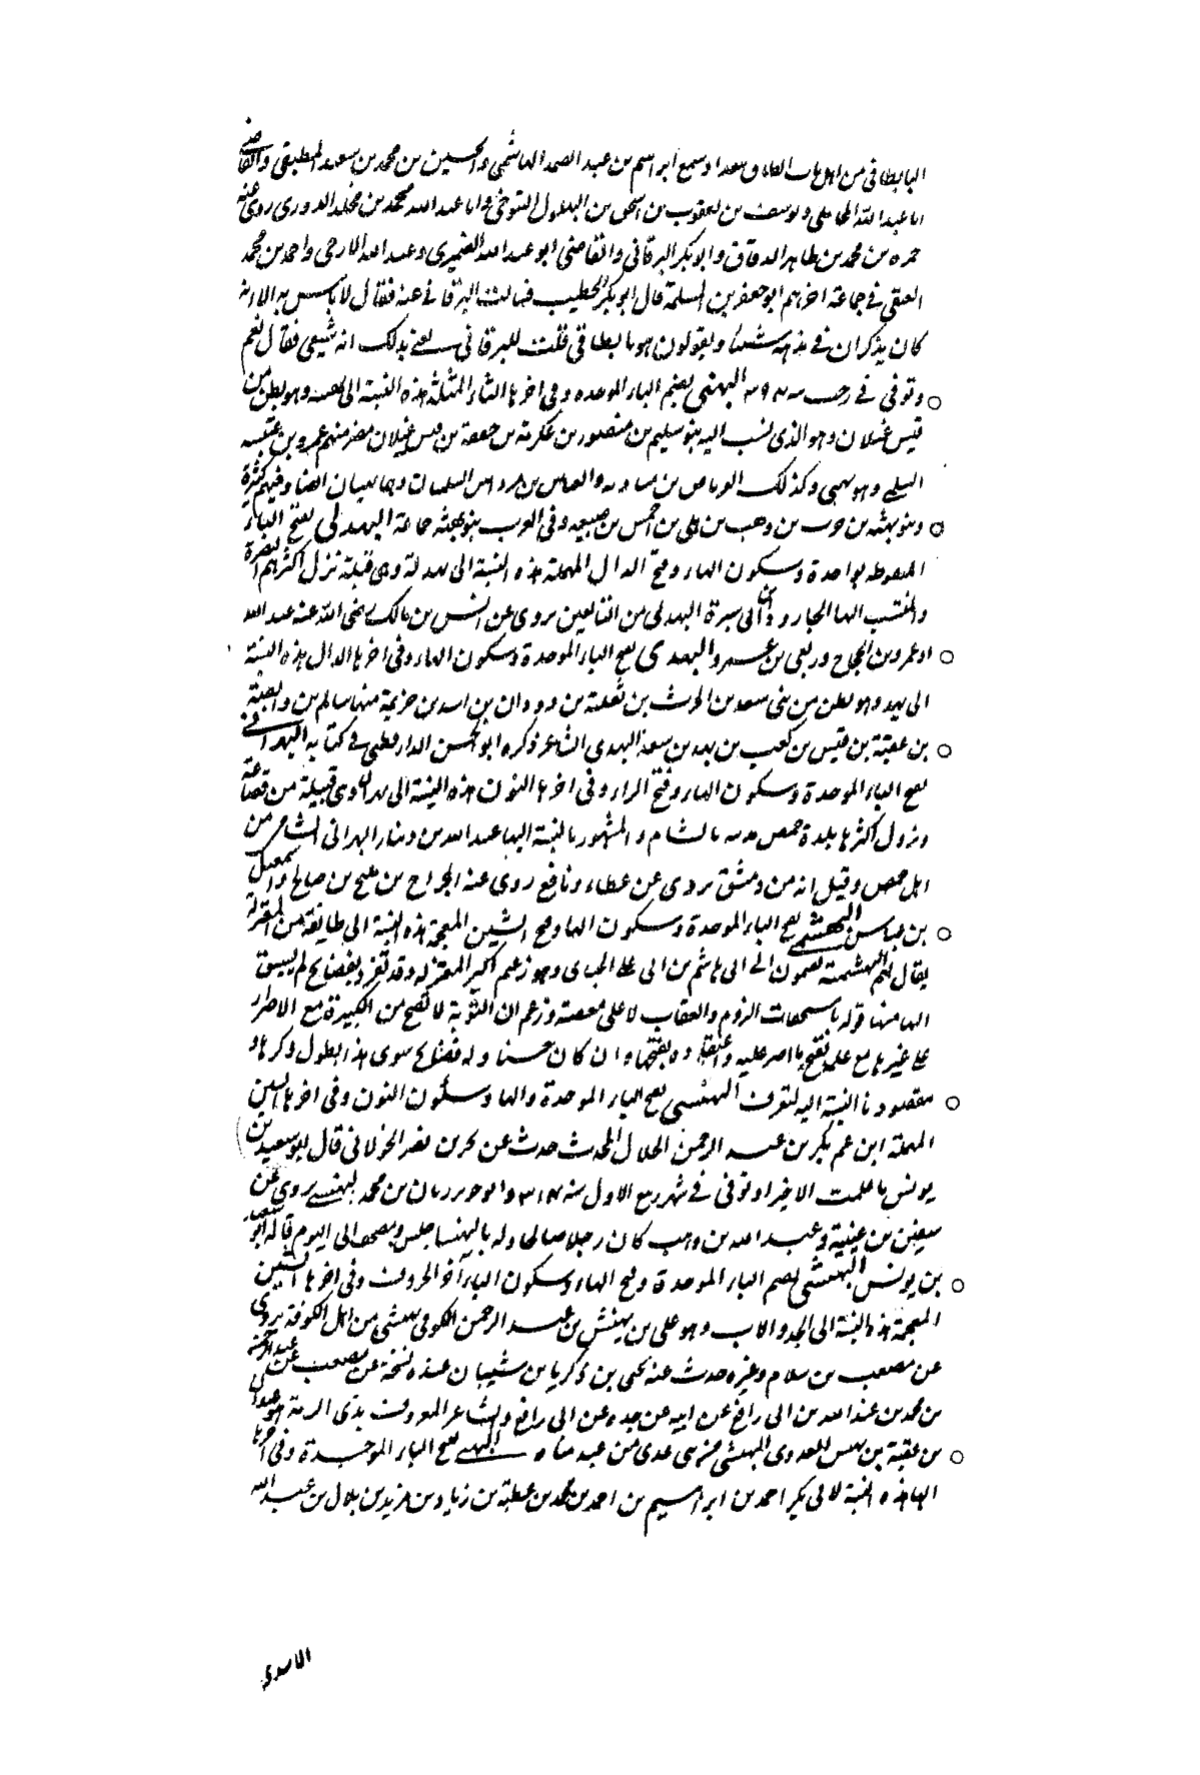 البابطاقي من اهل باب الطاق ببغداد سمع ابراهيم بن عبد الصمد الهاشمي والحسين بن محمد بن سعيد المطبقي والقاضي
ابا عبد الله المحاملي ويوسف بن يعقوب بن اسحق بن البهلول التنوخي وابا عبد الله محمد بن مخلد الدوري روى عنه
حمزه بن محمد بن طاهر الدقاق وابو بكر البرقاني والقاضي ابو عبد الله الصيمري وعبد الله الازجي واحمد بن محمد
العتيقي في جماعة اخرهم ابو جعفر بن المسلمة قال ابو بكر الخطيب فسالت البرقاني عنه فقال لا باس به الا انه
كان يذكر ان في مذهبه شيئا ويقولون هو بابطاقي قلت للبرقاني يعني بذلك انه شيعي فقال نعم
وتوفي في رجب سنه البهثي بضم الباء الموحده وفي اخرها الثاء المثلثة هذه النسبة الى بهثة وهو بطن من
قيس عيلان وهو الذي نسب اليه بنو سليم بن منصور بن عكرمة بن خصفة بن قيس عيلان مضر منهم عمرو بن عبسه
السلمي وهو بهثي وكذلك العرباض بن ساريه والعباس بن مرداس السلميان وهما بهثيان ايضا وفيهم كثرة
وبنو بهثه بن حرب بن وهب بن جلي بن احمس بن ضبيعه وفي العرب بنو بهثه جماعة البهدلي بفتح الباء
المنقوطه بواحدة وسكون الهاء وفتح الدال المهملة هذه النسبة الى بهدلة وهي قبيلة نزل اكثرهم البصرة
والمنتسب اليها الجارود بن ابي سبرة البهدلي من التابعين يروي عن انس بن مالك رضي الله عنه عبد الله
او عمرو بن الحجاج وربعي بن عمرو البهدي بفتح الباء الموحدة وسكون الهاء وفي اخرها الدال هذه النسبة
الى بهد وهو بطن من بني سعد بن الحرث بن ثعلبة بن دودان بن اسد بن خزيمة منها سالم بن وابصة
بن عقبة بن قيس بن كعب بن بهد بن سعد البهدي الشاعر ذكره ابو الحسن الدارقطني في كتابه البهراني
بفتح الباء الموحدة وسكون الهاء وفتح الراء وفي اخرها النون هذه النسبة الى بهرا وهي قبيلة من قضاعة
ونزول اكثرها بلدة حمص مدينه بالشام والمشهور بالنسبة اليها عبد الله بن دينار البهراني الشامي من
اهل حمص وقيل انه من دمشق يروي عن عطاء ونافع روى عنه الجراح بن مليح بن صالح واسمعيل
بن عياش البهشمي بفتح الباء الموحدة وسكون الهاء وفتح الشين المعجمة هذه النسبة الى طايفة من المعتزلة
يقال لهم البهشمية ينتمون الى ابي هاشم بن ابي علي الجبائي وهو زعيم اكثر المعتزله وقد تفرد بفضايح لم يسبق
اليها منها قوله باستحقاق الذم والعقاب لا على معصية وزعم ان التوبة لا تصح من الكبيرة مع الاصرار
على غيرها مع علمه بقبح ما اصر عليه واعتقاده بقبحها وان كان حسنا وله فضايح سوى هذا يطول ذكرها و
مقصودنا النسبة اليه لتعرف البهنسي بفتح الباء الموحدة والهاء وسكون النون وفي اخرها السين
المهملة ابن عم بكر بن عبد الرحمن الخلال المحدث حدث عن بحر بن نصر الخولاني قال ابو سعيد بن
يونس ما علمت الا خيرا توفي في شهر ربيع الاول سنه ٣١٤ وابو حريز بن محمد البهنسي يروي عن
سفين بن عيينة وعبد الله بن وهب كان رجلا صالحا وله بالبهنسا حلس ومصحف الى اليوم قاله ابو سعيد
بن يونس البهنشي بضم الباء الموحدة وفتح الهاء وسكون الياء اخر الحروف وفي اخرها الشين
المعجمة هذه النسبة الى الجد والاب وهو علي بن بهيش بن عبد الرحمن الكوفي بهيشي من اهل الكوفة يروي
عن مصعب بن سلام وغيره حدث عنه يحيى بن زكريا بن شيبان عنده نسخة عن مصعب عن عبد الرحمن
بن محمد بن عبد الله بن ابي رافع عن ابيه عن جده عن ابي رافع والشاعر المعروف بذي الرمة هو غيلان
بن عقبة بن بهيش العدوي البهيشي من بني عدي بن عبد مناه البهي بفتح الباء الموحدة وفي اخرها
الها هذه النسبة لابي بكر احمد بن ابراهيم بن احمد بن محمد بن عطية بن زياد بن مزيد بن بلال بن عبد الله
الاسدي